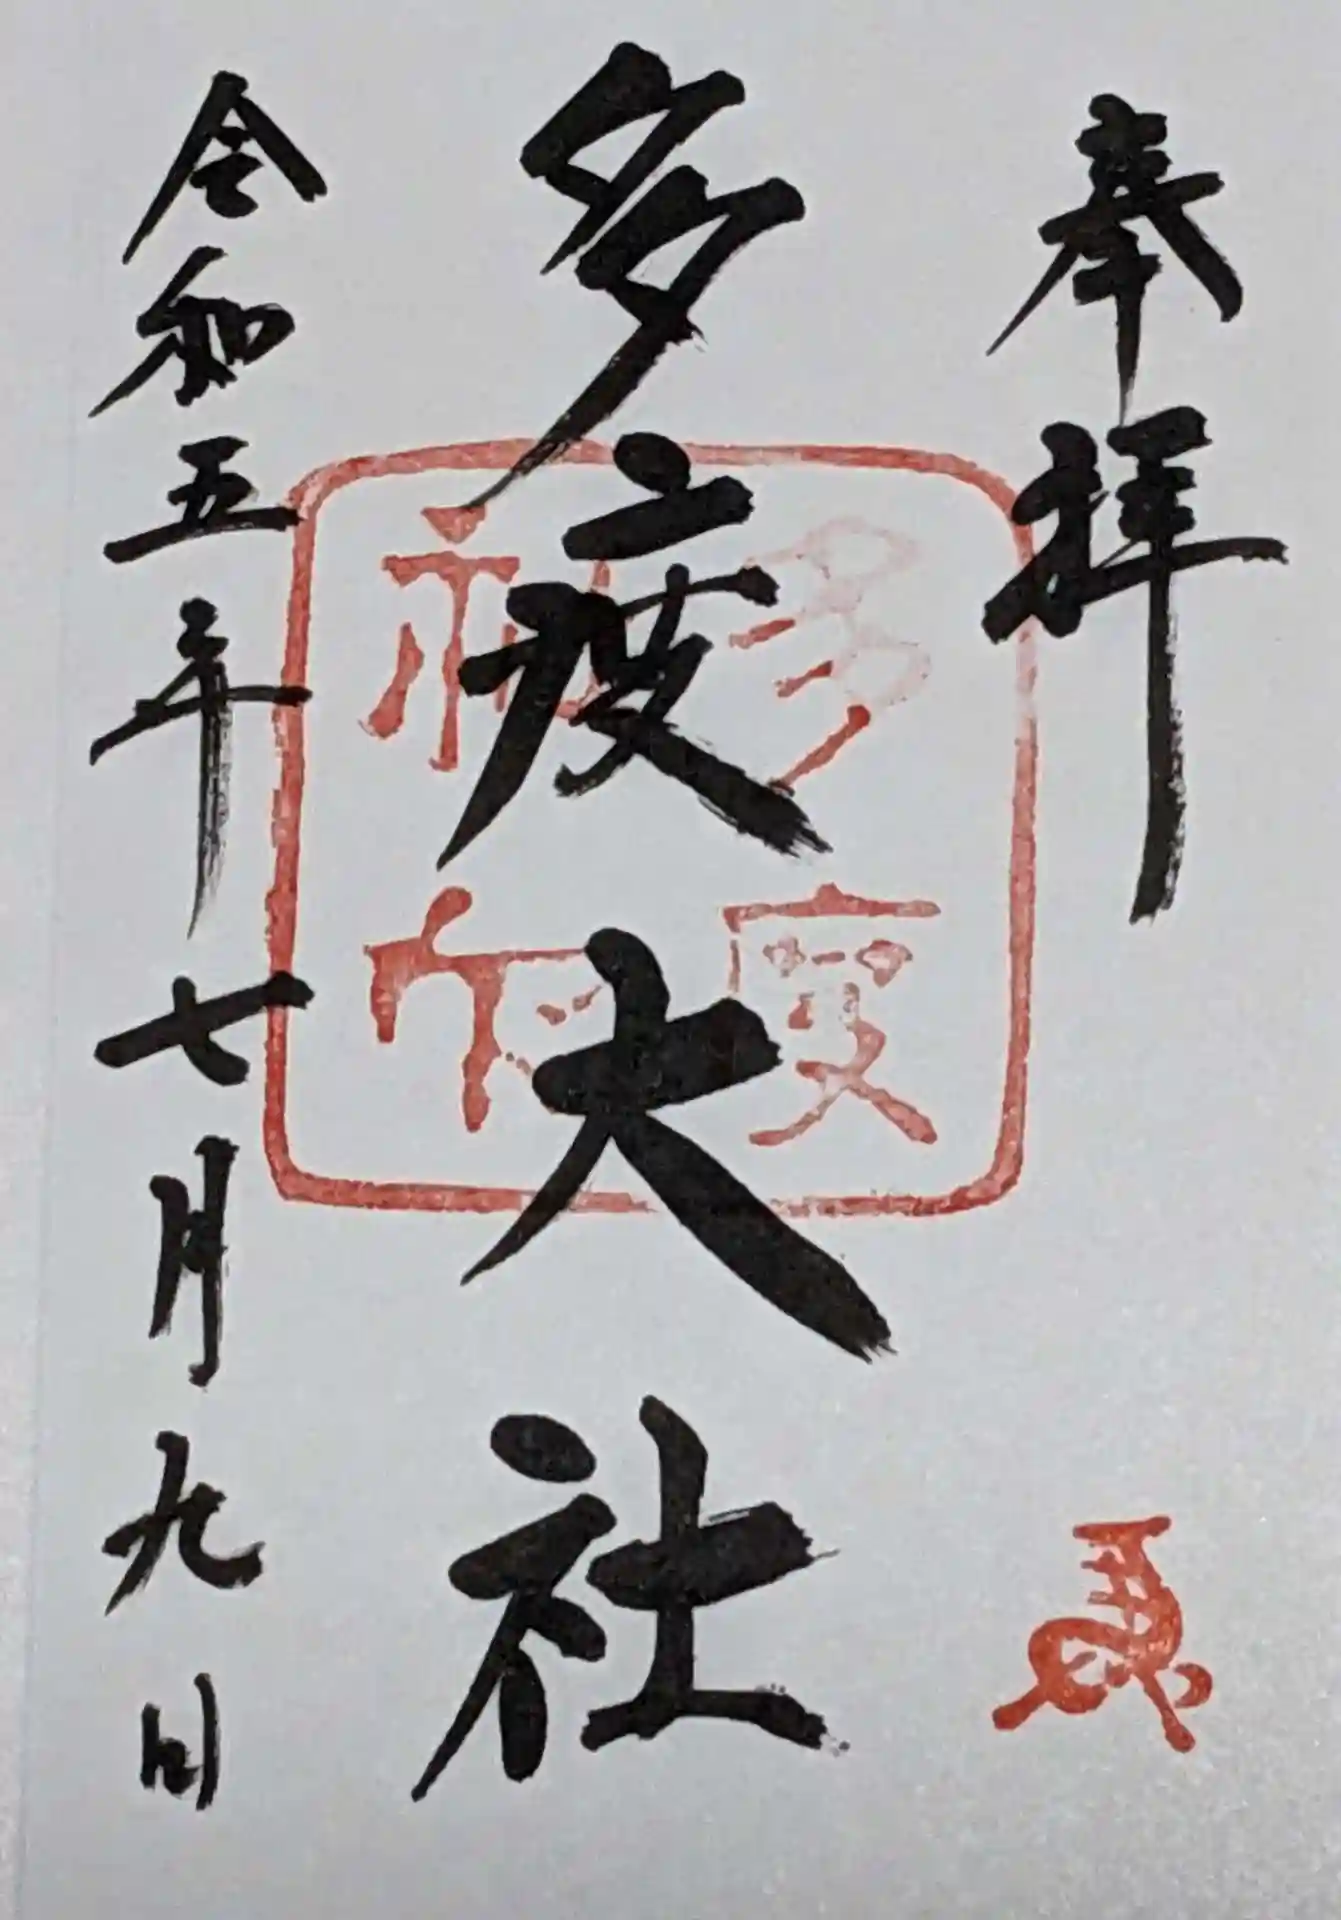 奉拝
多度大社
多度神社
令和五年七月九日